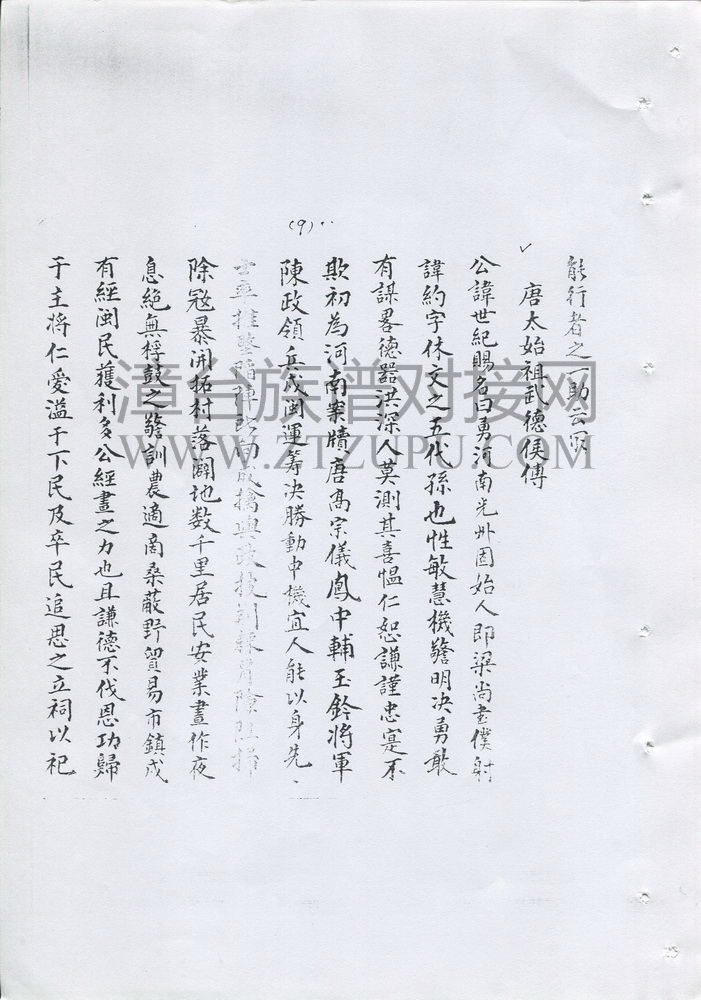 (9)
能行者之一助云尔
唐太始祖武德侯傳
公諱世紀賜名曰勇河南光州固始人即梁尚書僕射
諱約字休文之五代孫也性敏慧機警明決勇敢
有謀畧德器洪深人莫測其喜愠仁恕謙謹忠寔不
欺初為河南案牘唐高宗儀鳳中輔玉鈐將軍
陳政領兵戍閩運籌決勝動中機宜人能以身先
士卒推堅陷陣
除寇暴開拓村落闢地数千里居民安業晝作夜
息絶無桴鼓之警訓農通商桑蔽野貿易市鎮戍
有經閩民獲利多公經畫之力也且謙德不伐恩功歸
于主將仁愛溢于下民及卒民追思之立祠以祀
漳台族谱对接网
WWW.ZTZUPU.COM